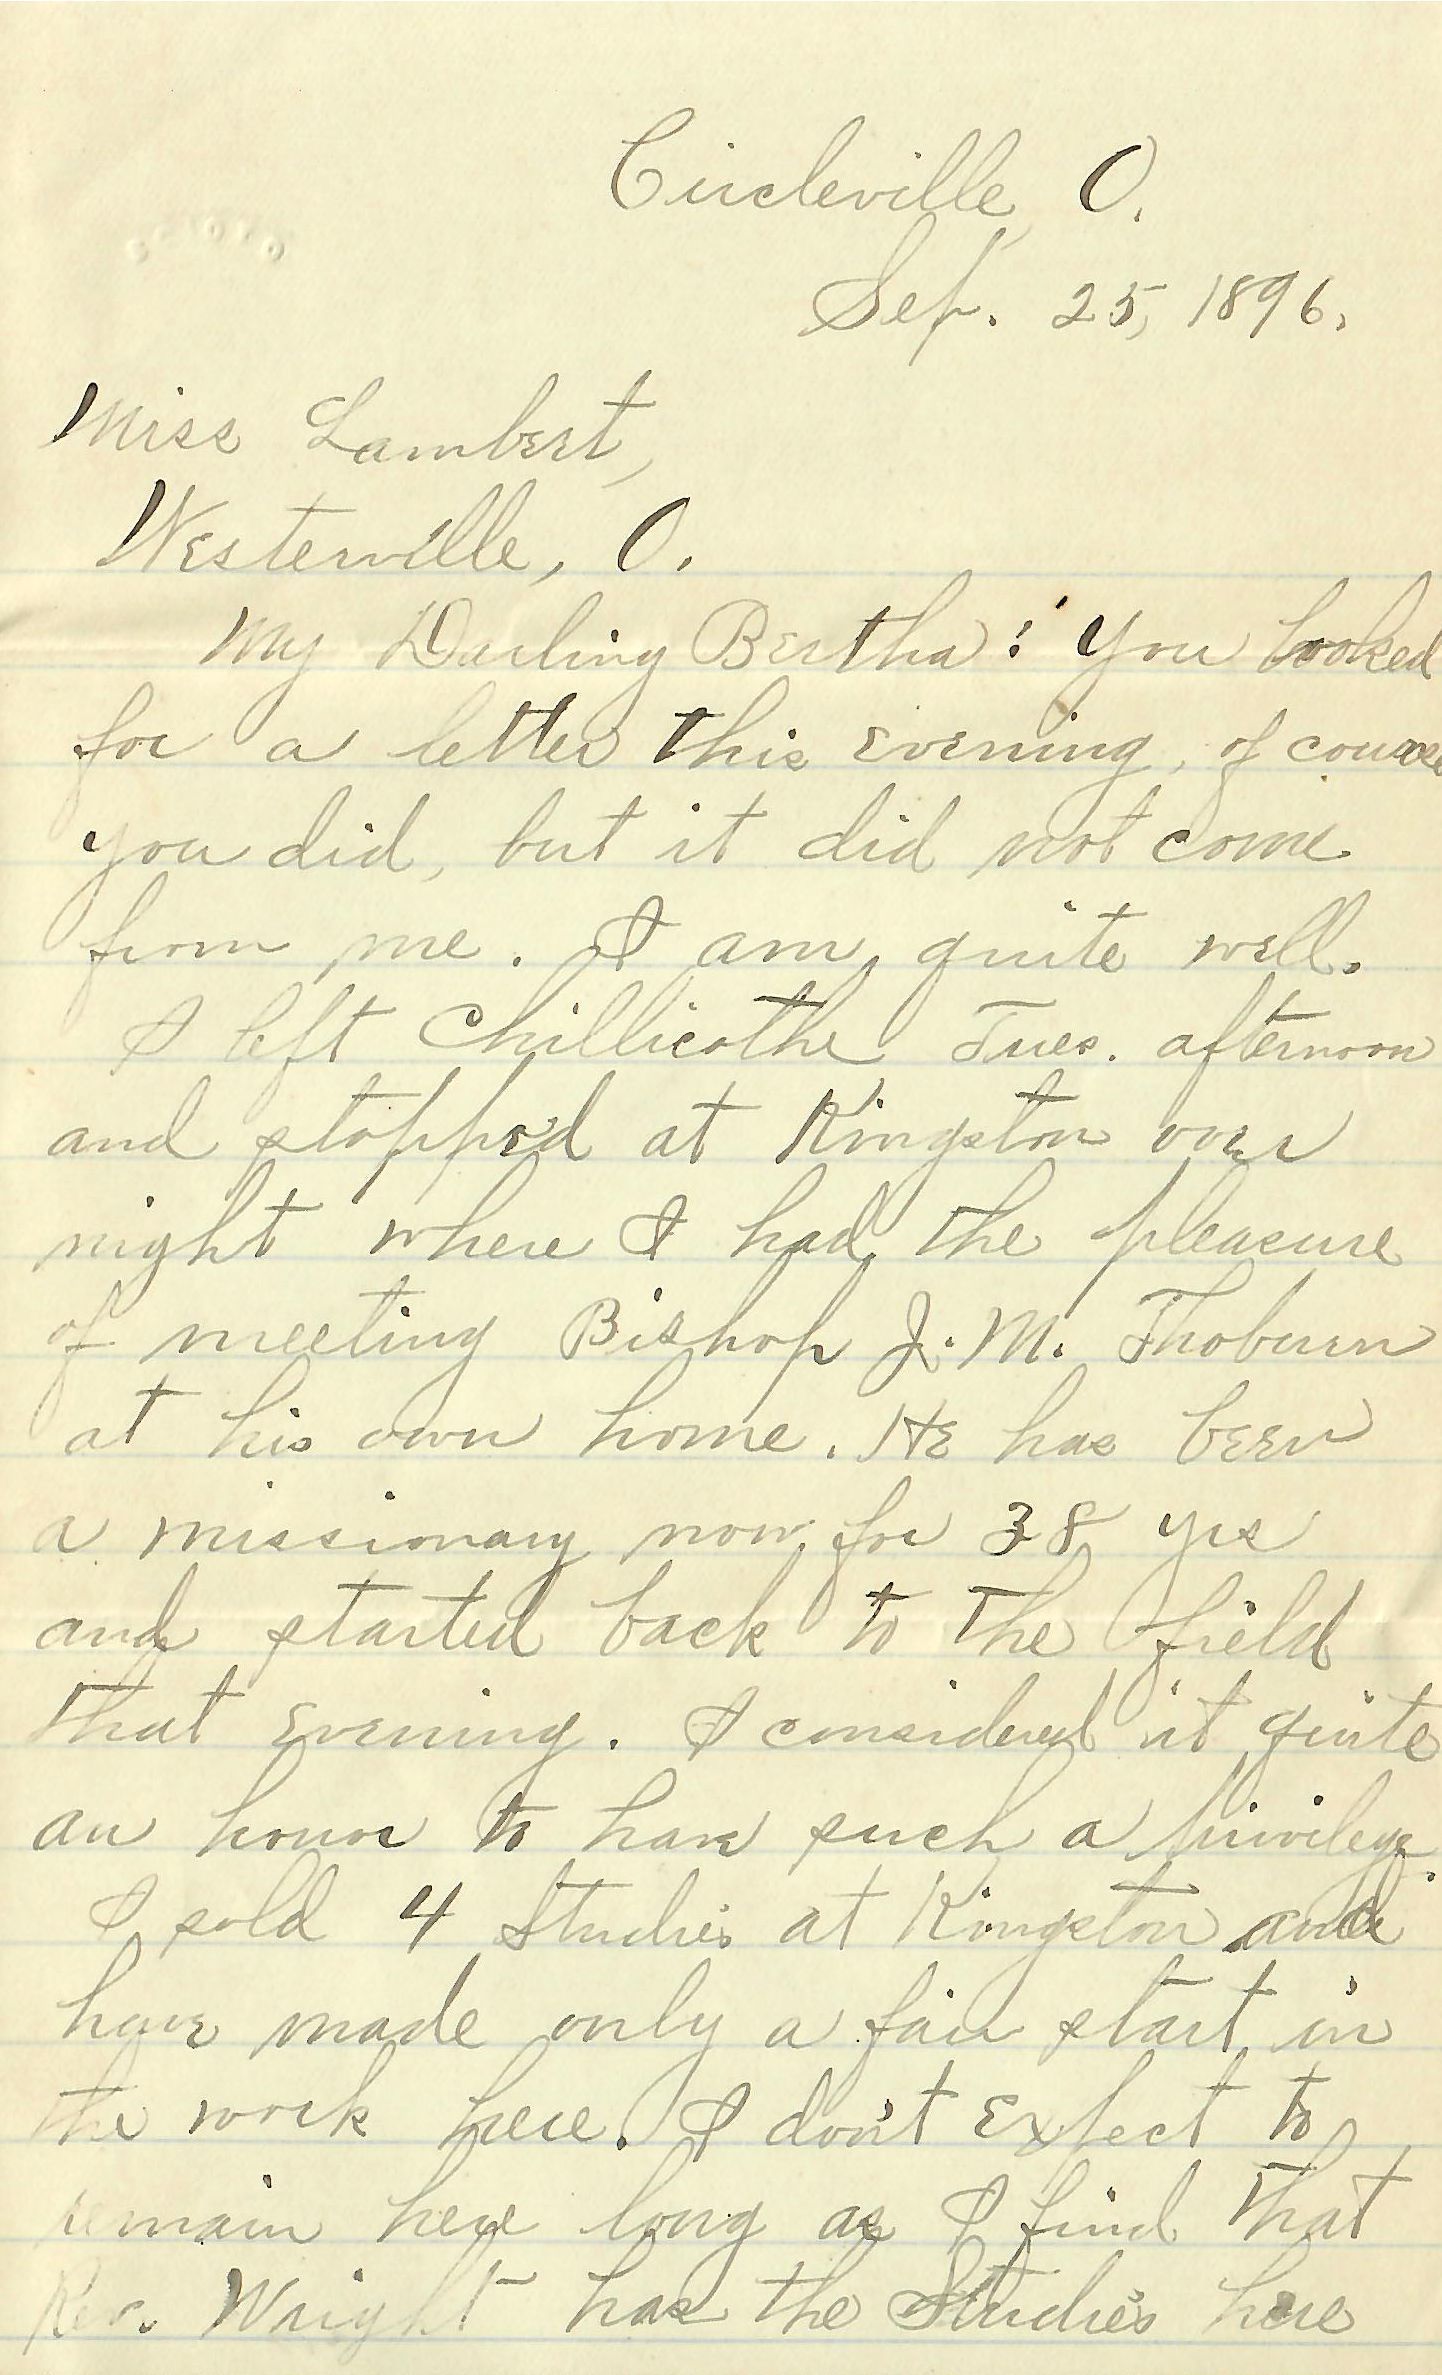 Circleville, O.
SCIOTO
Sep. 25, 1896.
Miss Lambert,
Westerville, O.
My Darling Bertha: You looked
for a letter this evening, of course
you did, but it did not come
from me. I am quite well.
I left Chillicothe Tues. afternoon
and stopped at Kingston over
night where I had the pleasure
of meeting Bishop J. M. Thoburn
at his own home. He has been
a missionary now for 38 yrs
and started back to the field
that evening. I considered it quite
an honor to have such a privilege.
I sold 4 Studies at Kingston and
have made only a fair start in
the work here. I don't expect to
remain here long as I find that
Rev. Wright has the Studies here